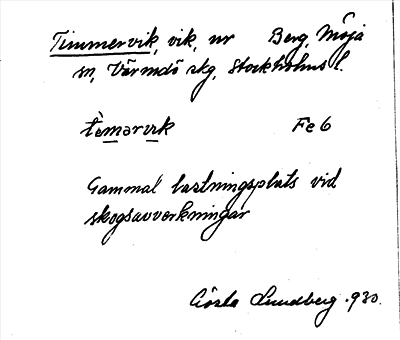 Timmervik, vik, nr Berg, Möja
sn, Värmdö skg, Stockholms l.
tèmərvik Fe 6
Gammal lastningsplats vid
skogsavverkningar
Gösta Lundberg 1930.